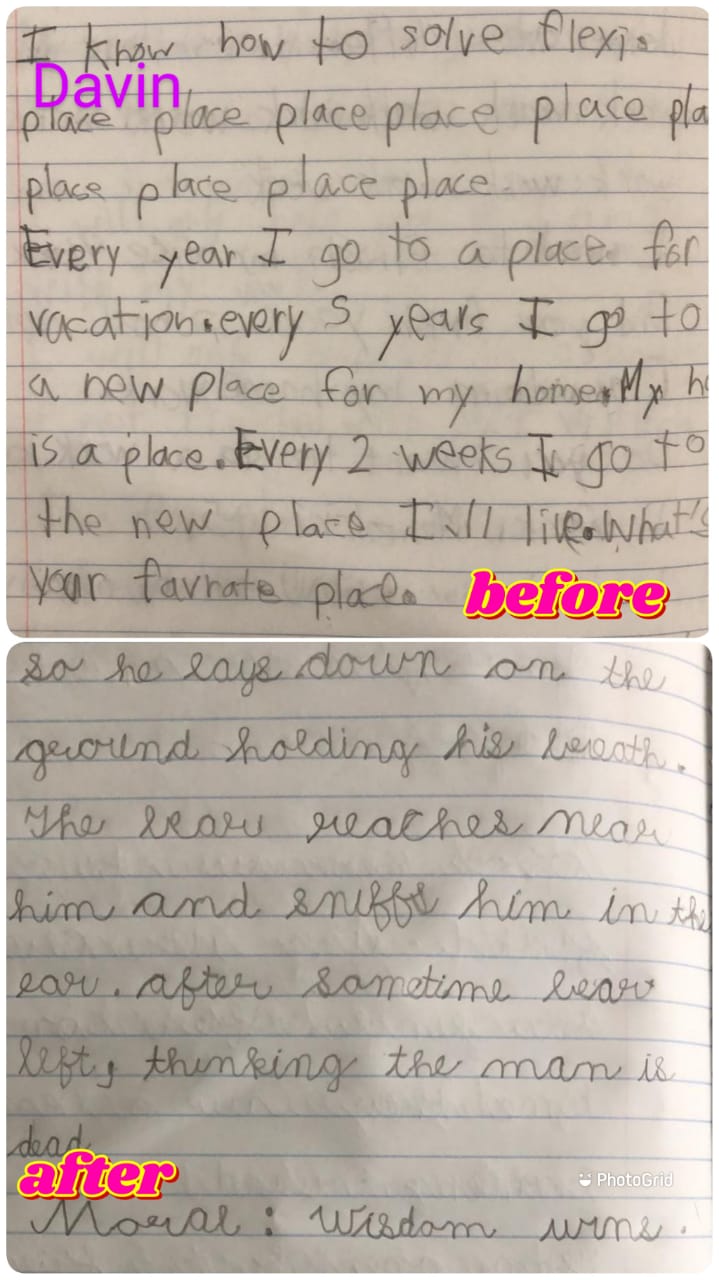 I know how to solve flexi.
Davin
place place place place place pla
place place place place.
Every year I go to a place for
vacation.every 5 years I go to
a new place for my home.My h
is a place.Every 2 weeks I go to
the new place I'll live.What's
your favrate place.
before
so he lays down on the
ground holding his breath.
The bear reaches near
him and sniffs him in the
ear. after sometime bear
left, thinking the man is
dead
after
PhotoGrid
Moral: Wisdom wins.